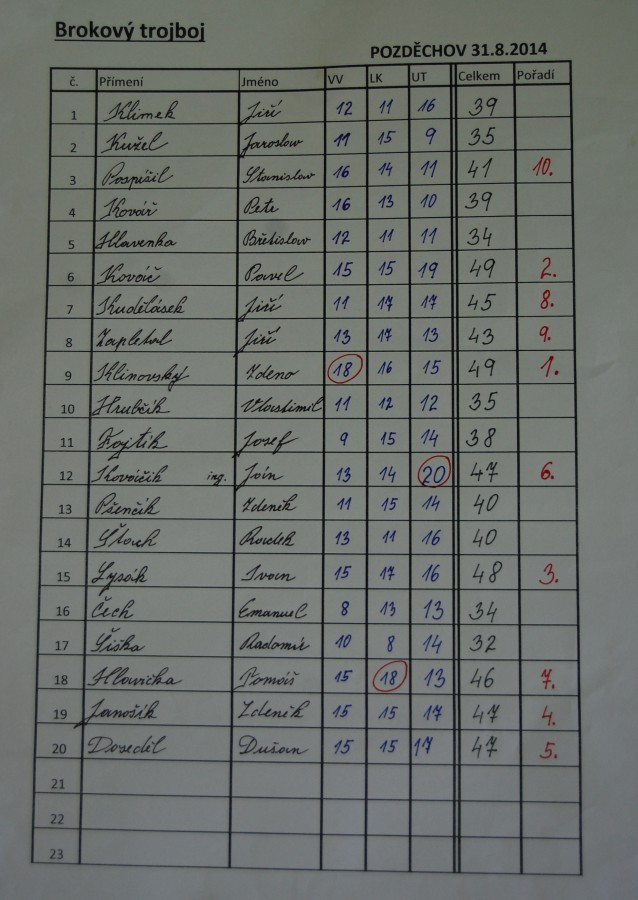 Brokový trojboj
POZDĚCHOV 31.8.2014
č. Přímení Jméno VV LK UT Celkem Pořadí
1 Klimek Jiří 12 11 16 39
2 Kužel Jaroslav 11 15 9 35
3 Pospíšil Stanislav 16 14 11 41 10.
4 Kovář Petr 16 13 10 39
5 Hlavenka Břetislav 12 11 11 34
6 Kováč Pavel 15 15 19 49 2.
7 Kudělásek Jiří 11 17 17 45 8.
8 Zapletal Jiří 13 17 13 43 9.
9 Klinovský Zdeno 18 16 15 49 1.
10 Hrubčík Vlastimil 11 12 12 35
11 Fojtík Josef 9 15 14 38
12 Kováčik ing. Ján 13 14 20 47 6.
13 Pšenčík Zdeněk 11 15 14 40
14 Šťach Radek 13 11 16 40
15 Lysák Ivan 15 17 16 48 3.
16 Čech Emanuel 8 13 13 34
17 Šiška Radomír 10 8 14 32
18 Hlavička Tomáš 15 18 13 46 7.
19 Janošík Zdeněk 15 15 17 47 4.
20 Doseděl Dušan 15 15 17 47 5.
21
22
23